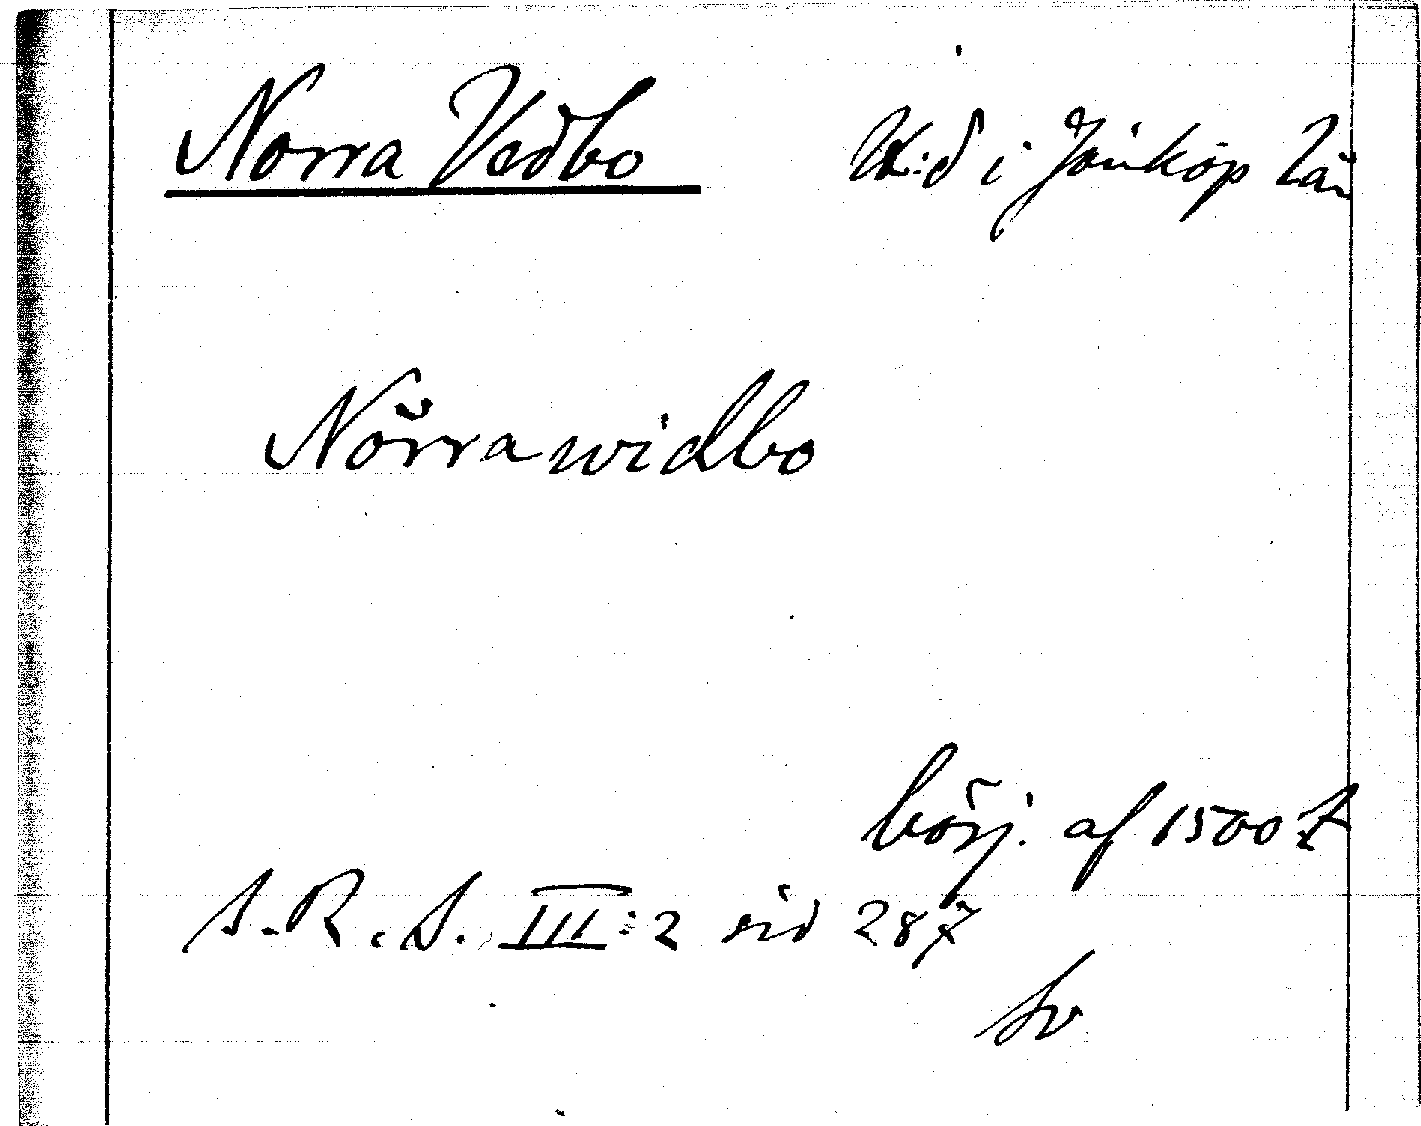 Norra Vedbo Hd i Jönköp län
Nörrawidbo
börj. af 1500 t
S.R.S. III:2 sid 287
Sv